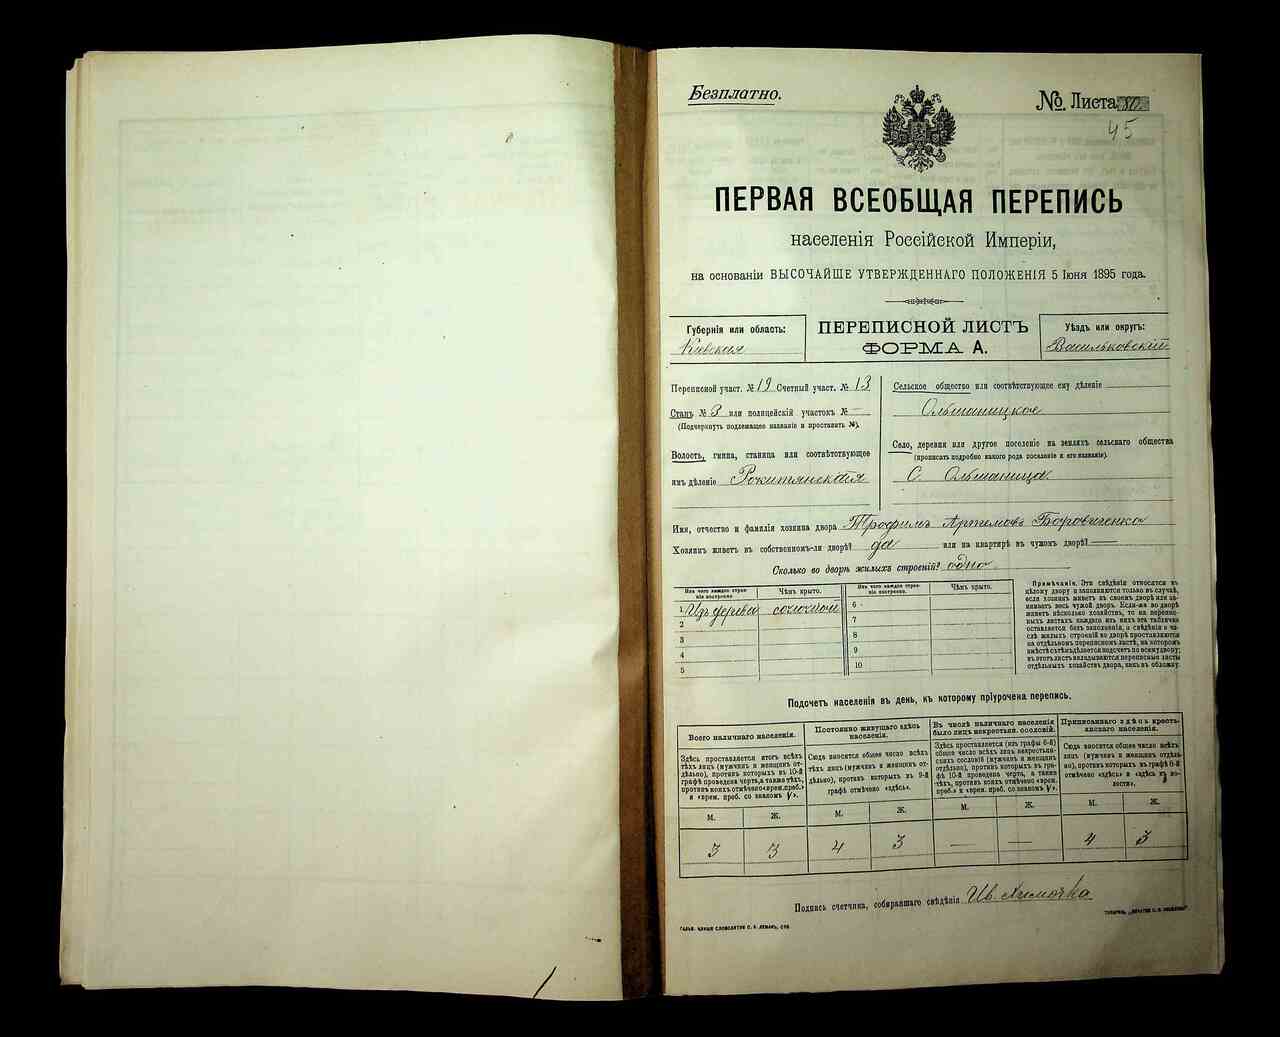 Безплатно.
№ Листа
45
ПЕРВАЯ ВСЕОБЩАЯ ПЕРЕПИСЬ
населенія Россійской Имперіи,
на основаніи ВЫСОЧАЙШЕ УТВЕРЖДЕННАГО ПОЛОЖЕНІЯ 5 Іюня 1895 года.
Губернія или область:
Кіевская
ПЕРЕПИСНОЙ ЛИСТЪ
ФОРМА А.
Уѣздъ или округъ:
Васильковскій
Переписной участ. № 19 Счетный участ. № 13
Станъ № 3 или полицейскій участокъ № —
(Подчеркнуть подлежащее названіе и проставить №).
Волость, гмина, станица или соотвѣтствующее
имъ дѣленіе Рокитянская
Сельское общество или соотвѣтствующее ему дѣленіе
Ольшаницкое
Село, деревня или другое поселеніе на земляхъ сельскаго общества
(прописать подробно какого рода поселеніе и его названіе).
С. Ольшаница.
Имя, отчество и фамилія хозяина двора Трофимъ Артемовъ Боровиченко
Хозяинъ живетъ въ собственномъ-ли дворѣ? да или на квартирѣ въ чужомъ дворѣ? —
Сколько во дворѣ жилыхъ строеній? одно
Изъ чего каждое строеніе построено. Чѣмъ крыто.
1 Изъ дерева соломой
2
3
4
5
Изъ чего каждое строеніе построено. Чѣмъ крыто.
6
7
8
9
10
Примѣчаніе. Эти свѣдѣнія относятся къ
цѣлому двору и заполняются только въ случаѣ,
если хозяинъ живетъ въ своемъ дворѣ или занимаетъ
весь чужой дворъ. Если-же во дворѣ
живетъ нѣсколько хозяйствъ, то на переписныхъ
листахъ каждаго изъ нихъ эта табличка
оставляется безъ заполненія, а свѣдѣнія о числѣ
жилыхъ строеній во дворѣ проставляются
на отдѣльномъ переписномъ листѣ, на которомъ
вмѣстѣ съ тѣмъ дѣлается подсчетъ по всему двору;
въ этотъ листъ вкладываются переписные листы
отдѣльныхъ хозяйствъ двора, какъ въ обложку.
Подсчетъ населенія въ день, къ которому пріурочена перепись.
Всего наличнаго населенія.
Здѣсь проставляется итогъ всѣхъ
тѣхъ лицъ (мужчинъ и женщинъ отдѣльно),
противъ которыхъ въ 10-й
графѣ проведена черта, а также тѣхъ,
противъ коихъ отмѣчено «врем. преб.»
и «врем. преб. со знакомъ V».
М. Ж.
3 3
Постоянно живущаго здѣсь
населенія.
Сюда вносится общее число всѣхъ
тѣхъ лицъ (мужчинъ и женщинъ отдѣльно),
противъ которыхъ въ 9-й
графѣ отмѣчено «здѣсь».
М. Ж.
4 3
Въ числѣ наличнаго населенія
было лицъ некрестьян. сословій.
Здѣсь проставляется (изъ графы 6-й)
общее число всѣхъ лицъ некрестьянскихъ
сословій (мужчинъ и женщинъ
отдѣльно), противъ которыхъ въ графѣ
10-й проведена черта, а также
тѣхъ, противъ коихъ отмѣчено «врем.
преб.» и «врем. преб. со знакомъ V».
М. Ж.
— —
Приписаннаго здѣсь крестьянскаго
населенія.
Сюда вносится общее число всѣхъ
лицъ (мужчинъ и женщинъ отдѣльно),
противъ которыхъ въ графѣ 8-й
отмѣчено «здѣсь» и «здѣсь въ волости».
М. Ж.
4 3
Подпись счетчика, собиравшаго свѣдѣнія Ив. Химочка